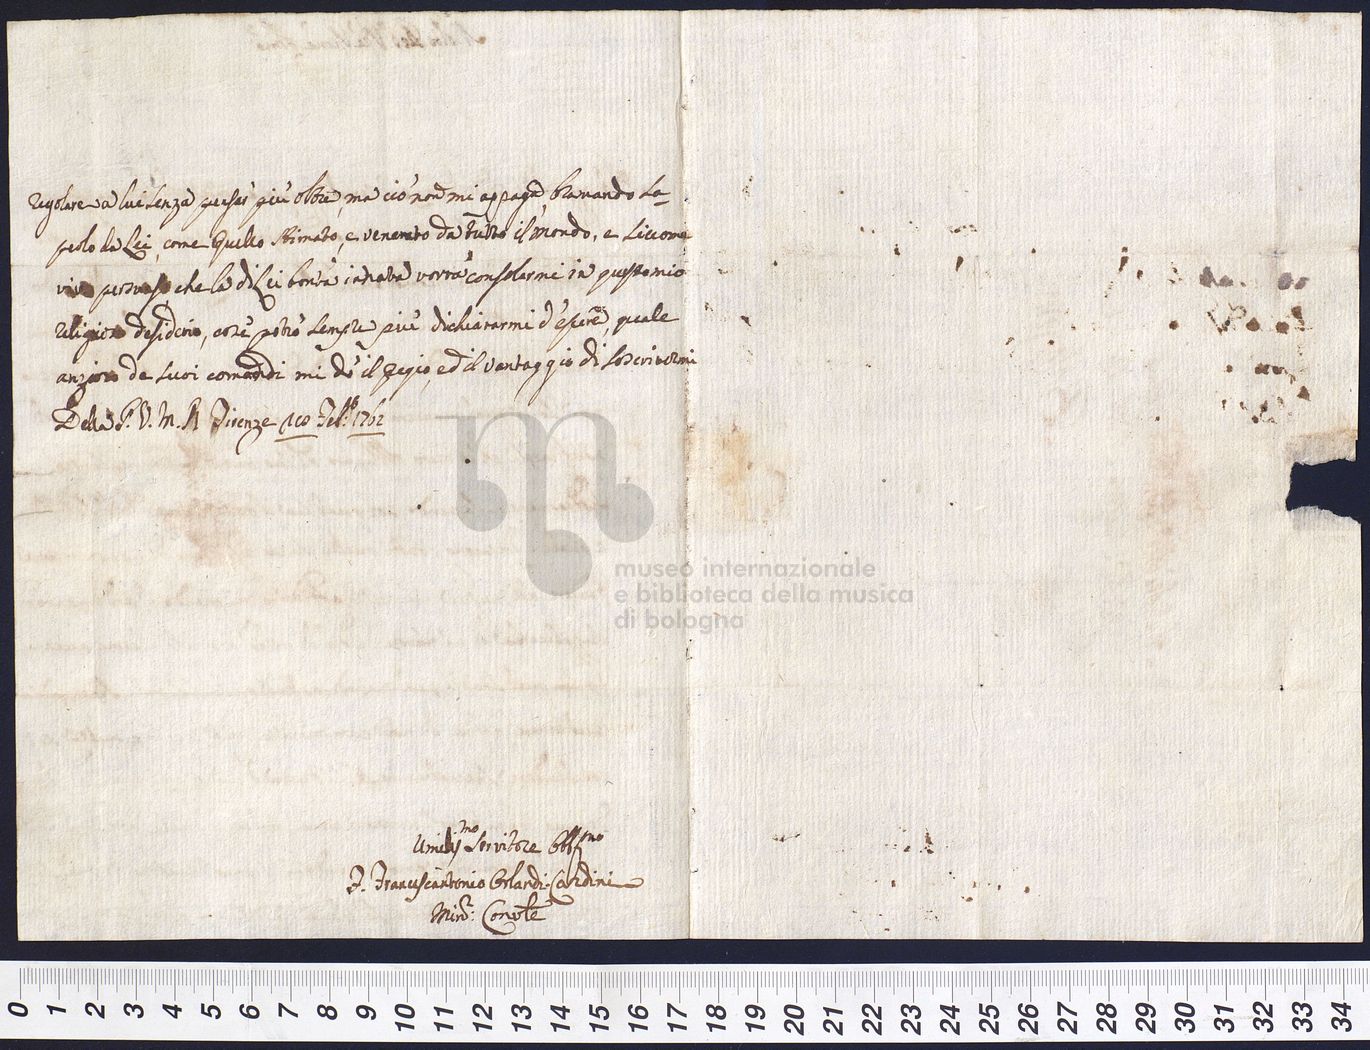 regolare a lui senza pensar più oltre, ma ciò non mi appaga, bramando sa=
perlo da Lei, come quello stimato, e venerato da tutto il mondo, e siccome
vivo persuaso, che la di Lei bontà innata vorrà consolarmi in questo mio
religioso desiderio, così potrò sempre più dichiararmi d'essere, quale
anzioso de suoi comandi mi dò il pregio, ed il vantaggio di soscrivermi
Della P. V. M. R Firenze Feb.º 1762
Umilis.mo Servitore Obb.mo
F. Francescantonio Orlandi-Cardini
Min.r Conv.le
museo internazionale
e biblioteca della musica
di bologna
0 1 2 3 4 5 6 7 8 9 10 11 12 13 14 15 16 17 18 19 20 21 22 23 24 25 26 27 28 29 30 31 32 33 34